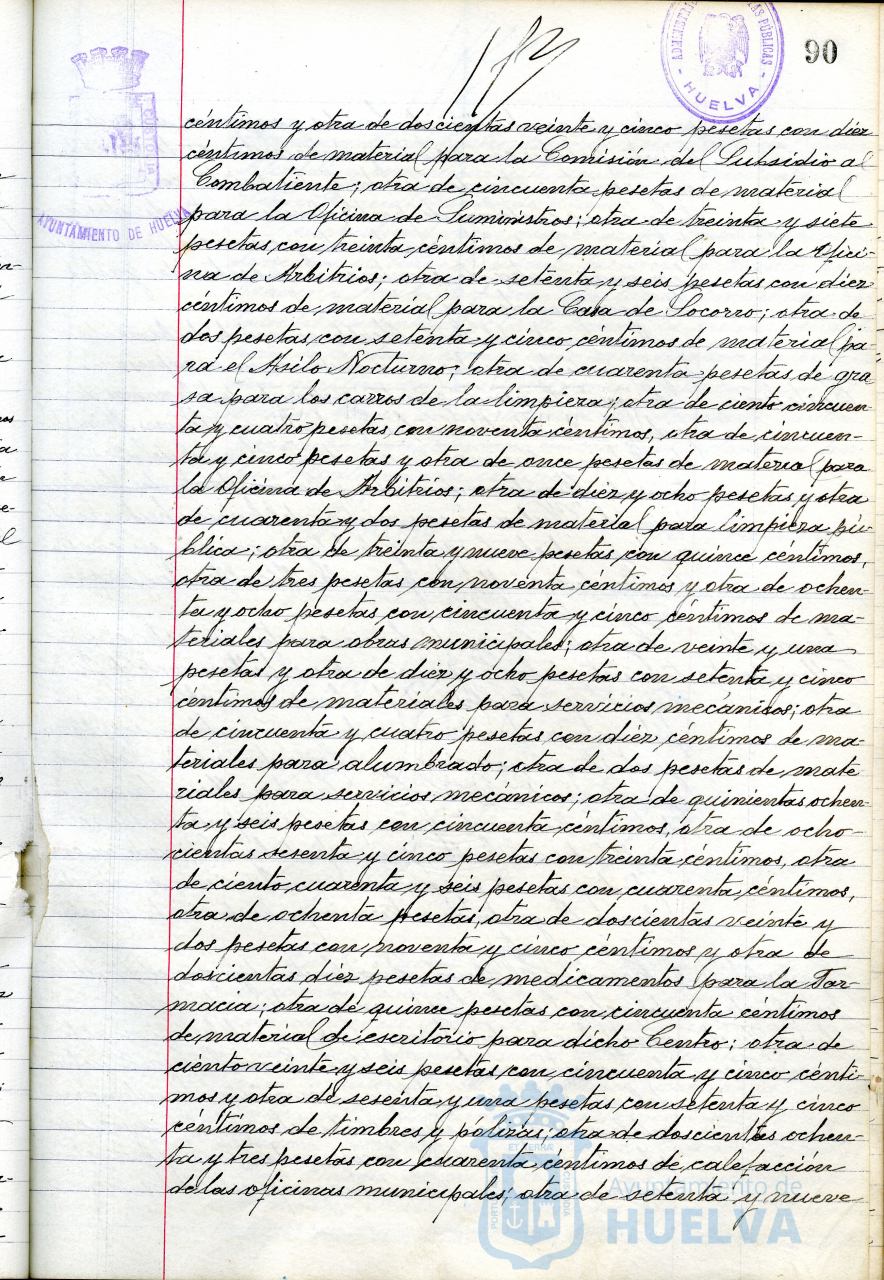 90
ADMINISTRA
AS PÚBLICAS
HUELVA
AYUNTAMIENTO DE HUELVA
céntimos y otra de doscientas veinte y cinco pesetas con diéz
céntimos de material para la Comisión del Subsidio al
Combatiente; otra de cincuenta pesetas de material
para la Oficina de Suministros; otra de treinta y siete
pesetas con treinta céntimos de material para la Ofici-
na de Arbitrios; otra de setenta y seis pesetas con diéz
céntimos de material para la Casa de Socorro; otra de
dos pesetas con setenta y cinco céntimos de material pa-
ra el Asilo Nocturno; otra de cuarenta pesetas de gra
sa para los carros de la limpieza; otra de ciento cincuen-
ta y cuatro pesetas con noventa céntimos, otra de cincuen-
ta y cinco pesetas y otra de once pesetas de material para
la Oficina de Arbitrios; otra de diéz y ocho pesetas y otra
de cuarenta y dos pesetas de material para limpieza pú-
blica; otra de treinta y nueve pesetas con quince céntimos,
otra de tres pesetas con noventa céntimos y otra de ochen-
ta y ocho pesetas con cincuenta y cinco céntimos de ma-
teriales para obras municipales; otra de veinte y una
pesetas y otra de diéz y ocho pesetas con setenta y cinco
céntimos de materiales para servicios mecánicos; otra
de cincuenta y cuatro pesetas con diéz céntimos de ma-
teriales para alumbrado; otra de dos pesetas de mate
riales para servicios mecánicos; otra de quinientas ochen-
ta y seis pesetas con cincuenta céntimos, otra de ocho-
cientas sesenta y cinco pesetas con treinta céntimos, otra
de ciento cuarenta y seis pesetas con cuarenta céntimos,
otra de ochenta pesetas, otra de doscientas veinte y
dos pesetas con noventa y cinco céntimos y otra de
doscientas diéz pesetas de medicamentos para la Far-
macia; otra de quince pesetas con cincuenta céntimos
de material de escritorio para dicho Centro; otra de
ciento veinte y seis pesetas con cincuenta y cinco cénti-
mos y otra de sesenta y una pesetas con setenta y cinco
céntimos de timbres y polizas; otra de doscientas ochen-
ta y tres pesetas con cuarenta céntimos de calefacción
de las oficinas municipales; otra de setenta y nueve
Ayuntamiento de
HUELVA